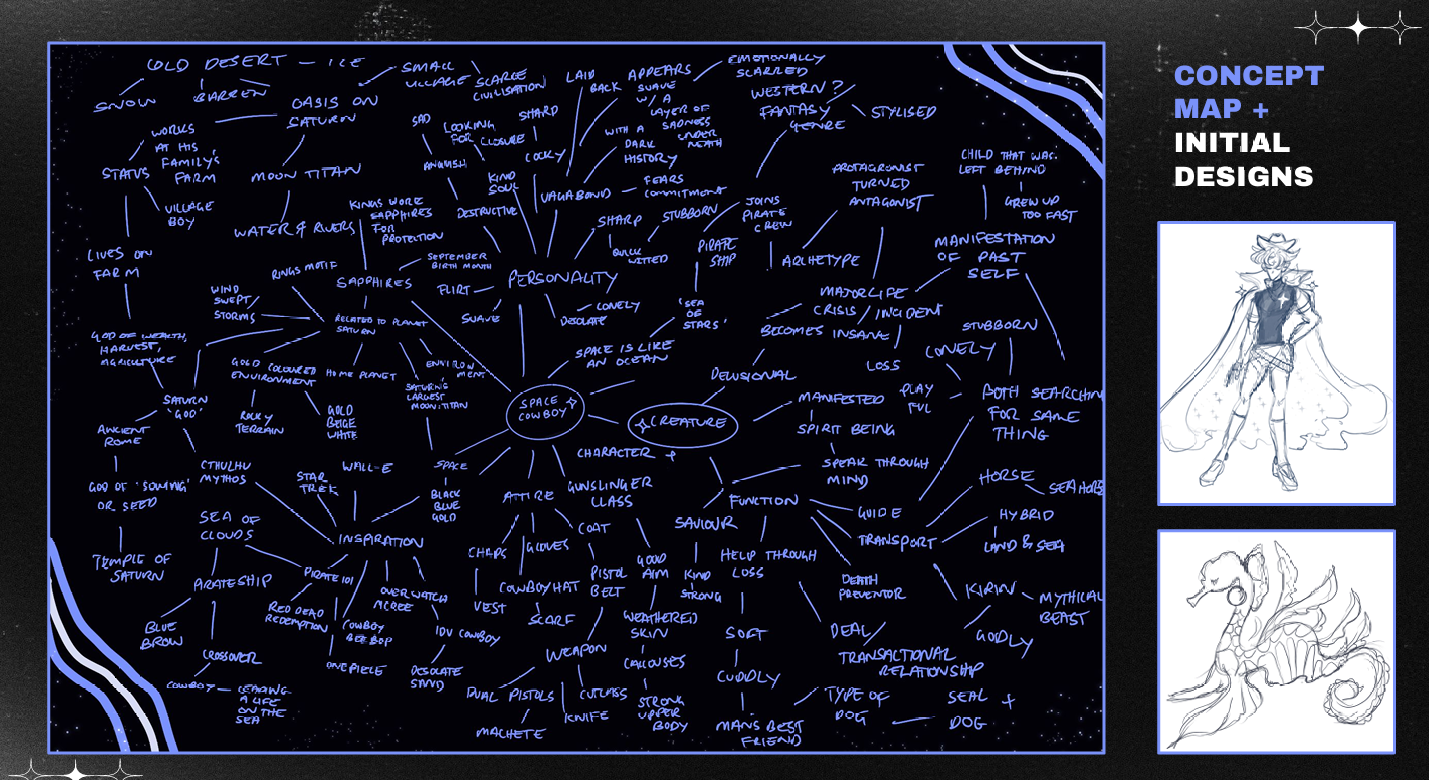 CONCEPT
MAP +
INITIAL
DESIGNS
COLD DESERT — ICE
SNOW
BARREN
SMALL
VILLAGE
SCARCE
CIVILISATION
OASIS ON
SATURN
WORKS
AT HIS
FAMILY'S
FARM
STATUS
VILLAGE
BOY
LIVES ON
FARM
MOON TITAN
WATER & RIVERS
GOD OF WEALTH,
HARVEST,
AGRICULTURE
SATURN
'GOD'
ANCIENT
ROME
GOD OF 'SOWING'
OR SEED
TEMPLE OF
SATURN
KINGS WORE
SAPPHIRES
FOR
PROTECTION
SEPTEMBER
BIRTH MONTH
SAPPHIRES
RINGS MOTIF
WIND
SWEPT
STORMS
RELATED TO PLANET
SATURN
GOLD COLOURED
ENVIRONMENT
ROCKY
TERRAIN
GOLD
BEIGE
WHITE
HOME PLANET
ENVIRON
MENT
SATURN'S
LARGEST
MOON: TITAN
SAD
LOOKING
FOR CLOSURE
ANGUISH
DESTRUCTIVE
KIND
SOUL
SHARP
COCKY
LAID
BACK
APPEARS
SUAVE
W/ A
LAYER OF
SADNESS
UNDER
NEATH
EMOTIONALLY
SCARRED
WITH A
DARK
HISTORY
VAGABOND — FEARS
COMMITMENT
SHARP
QUICK
WITTED
STUBBORN
PERSONALITY
FLIRT
SUAVE
LONELY
DESOLATE
WESTERN?
FANTASY
GENRE
STYLISED
JOINS
PIRATE
CREW
PIRATE
SHIP
'SEA
OF
STARS'
SPACE IS LIKE
AN OCEAN
SPACE
COWBOY
CREATURE
PROTAGRONIST
TURNED
ANTAGONIST
ARCHETYPE
CHILD THAT WAS
LEFT BEHIND
GREW UP
TOO FAST
MANIFESTATION
OF PAST
SELF
MAJOR LIFE
CRISIS / INCIDENT
BECOMES INSANE
LOSS
DELUSIONAL
STUBBORN
LONELY
PLAY
FUL
BOTH SEARCHING
FOR SAME
THING
MANIFESTED
SPIRIT BEING
SPEAK THROUGH
MIND
FUNCTION
GUIDE
TRANSPORT
HORSE
SEAHORSE
HYBRID
LAND & SEA
KIRIN
MYTHICAL
BEAST
GODLY
DEATH
PREVENTOR
DEAL
TRANSACTIONAL
RELATIONSHIP
SAVIOUR
KIND
STRONG
HELP THROUGH
LOSS
SOFT
CUDDLY
MANS BEST
FRIEND
TYPE OF
DOG
SEAL +
DOG
CHARACTER +
GUNSLINGER
CLASS
GOOD
AIM
WEATHERED
SKIN
CALLOUSES
STRONG
UPPER
BODY
SPACE
BLACK
BLUE
GOLD
ATTIRE
CHAPS
VEST
GLOVES
COWBOY HAT
SCARF
COAT
PISTOL
BELT
WEAPON
DUAL PISTOLS
MACHETE
KNIFE
CUTLASS
INSPIRATION
CTHULHU
MYTHOS
STAR
TREK
WALL-E
SEA OF
CLOUDS
PIRATESHIP
BLUE
BROW
CROSSOVER
COWBOY — LEADING
A LIFE
ON THE
SEA
PIRATE 101
RED DEAD
REDEMPTION
COWBOY
BEEBOP
ONE PIECE
OVERWATCH
MCREE
IDV COWBOY
DESOLATE
SAND